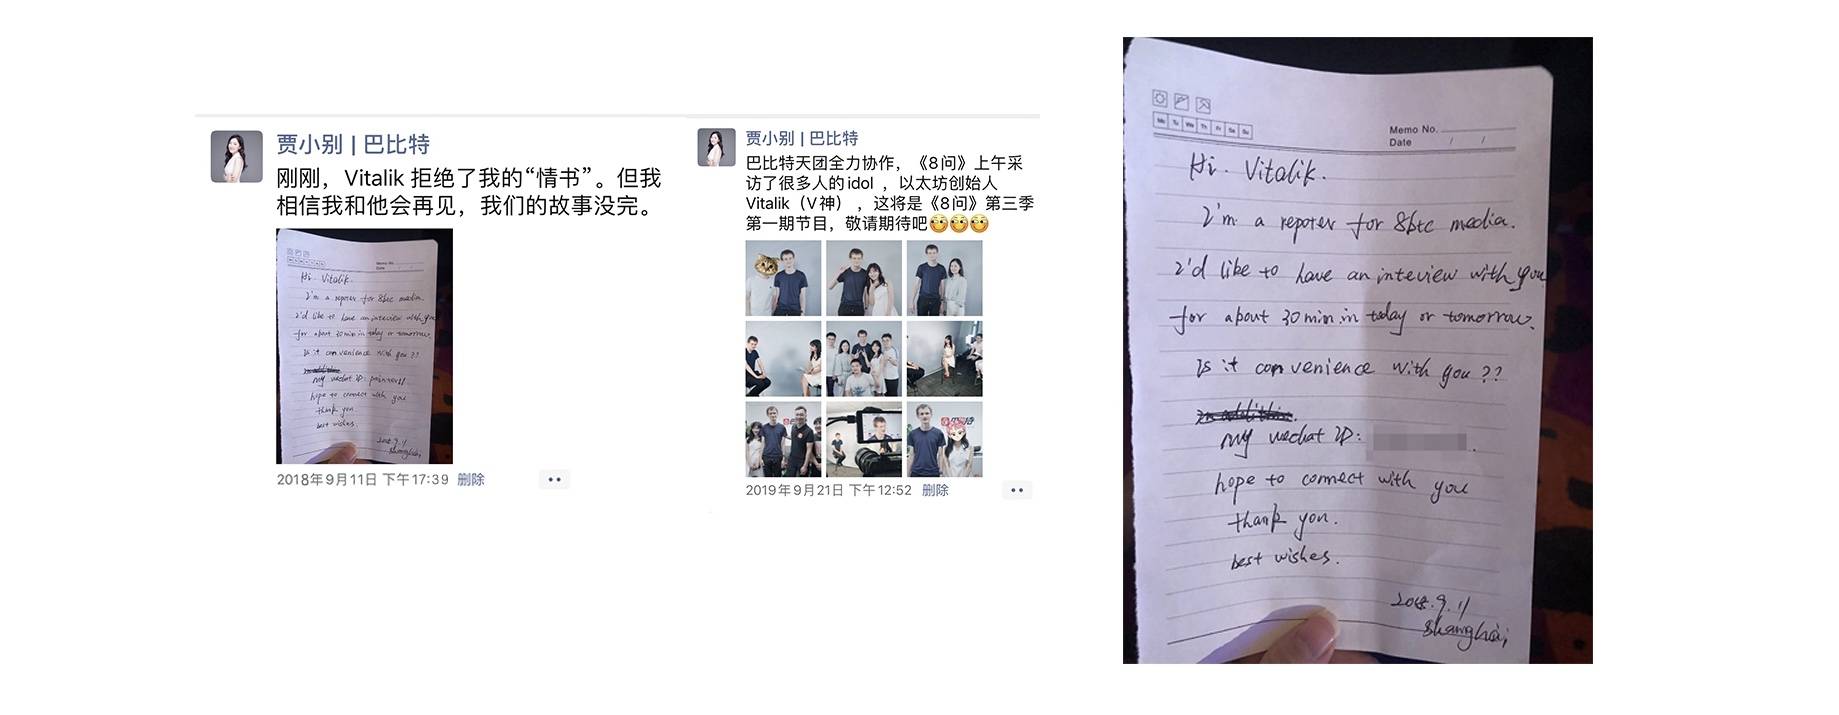 贾小别 | 巴比特
刚刚，Vitalik 拒绝了我的“情书”。但我
相信我和他会再见，我们的故事没完。
Memo No.
Date
Hi. Vitalik.
I'm a reporer for 8btc media.
I'd like to have an inteview with you
for about 30 min.in today or tomorrow.
Is it convenience with you ??
my wechat ID:
hope to connect with you
thank you.
best wishes.
2018.9.11
Shanghai
2018年9月11日 下午17:39 删除
贾小别 | 巴比特
巴比特天团全力协作，《8问》上午采
访了很多人的idol ，以太坊创始人
Vitalik（V神），这将是《8问》第三季
第一期节目，敬请期待吧
2019年9月21日 下午12:52 删除
Mo Tu We Th Fr Sa Su
Memo No.
Date / /
Hi. Vitalik.
I'm a reporer for 8btc media.
I'd like to have an inteview with you
for about 30 min.in today or tomorrow.
Is it convenience with you ??
in addition.
my wechat ID: .
hope to connect with you
thank you.
best wishes.
2018.9.11
Shanghai